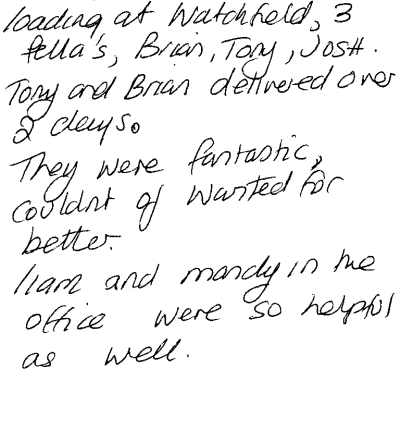 loading at Watchfield, 3
fella's, Brian, Tony, Josh.
Tony and Brian delivered over
2 days.
They were fantastic,
couldnt of wanted for
better.
liam and mandy in the
office were so helpful
as well.